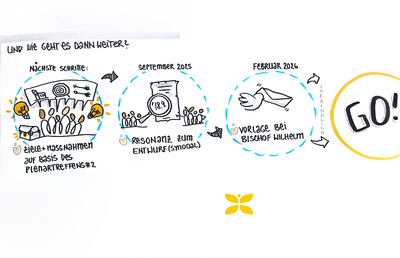 UND WIE GEHT ES DANN WEITER?
NÄCHSTE SCHRITTE:
SEPTEMBER 2025
FEBRUAR 2026
18.9.
GO!
ZIELE + MASSNAHMEN
AUF BASIS DES
PLENARTREFFENS #2
RESONANZ ZUM
ENTWURF (SYNODAL)
VORLAGE BEI
BISCHOF WILHELM